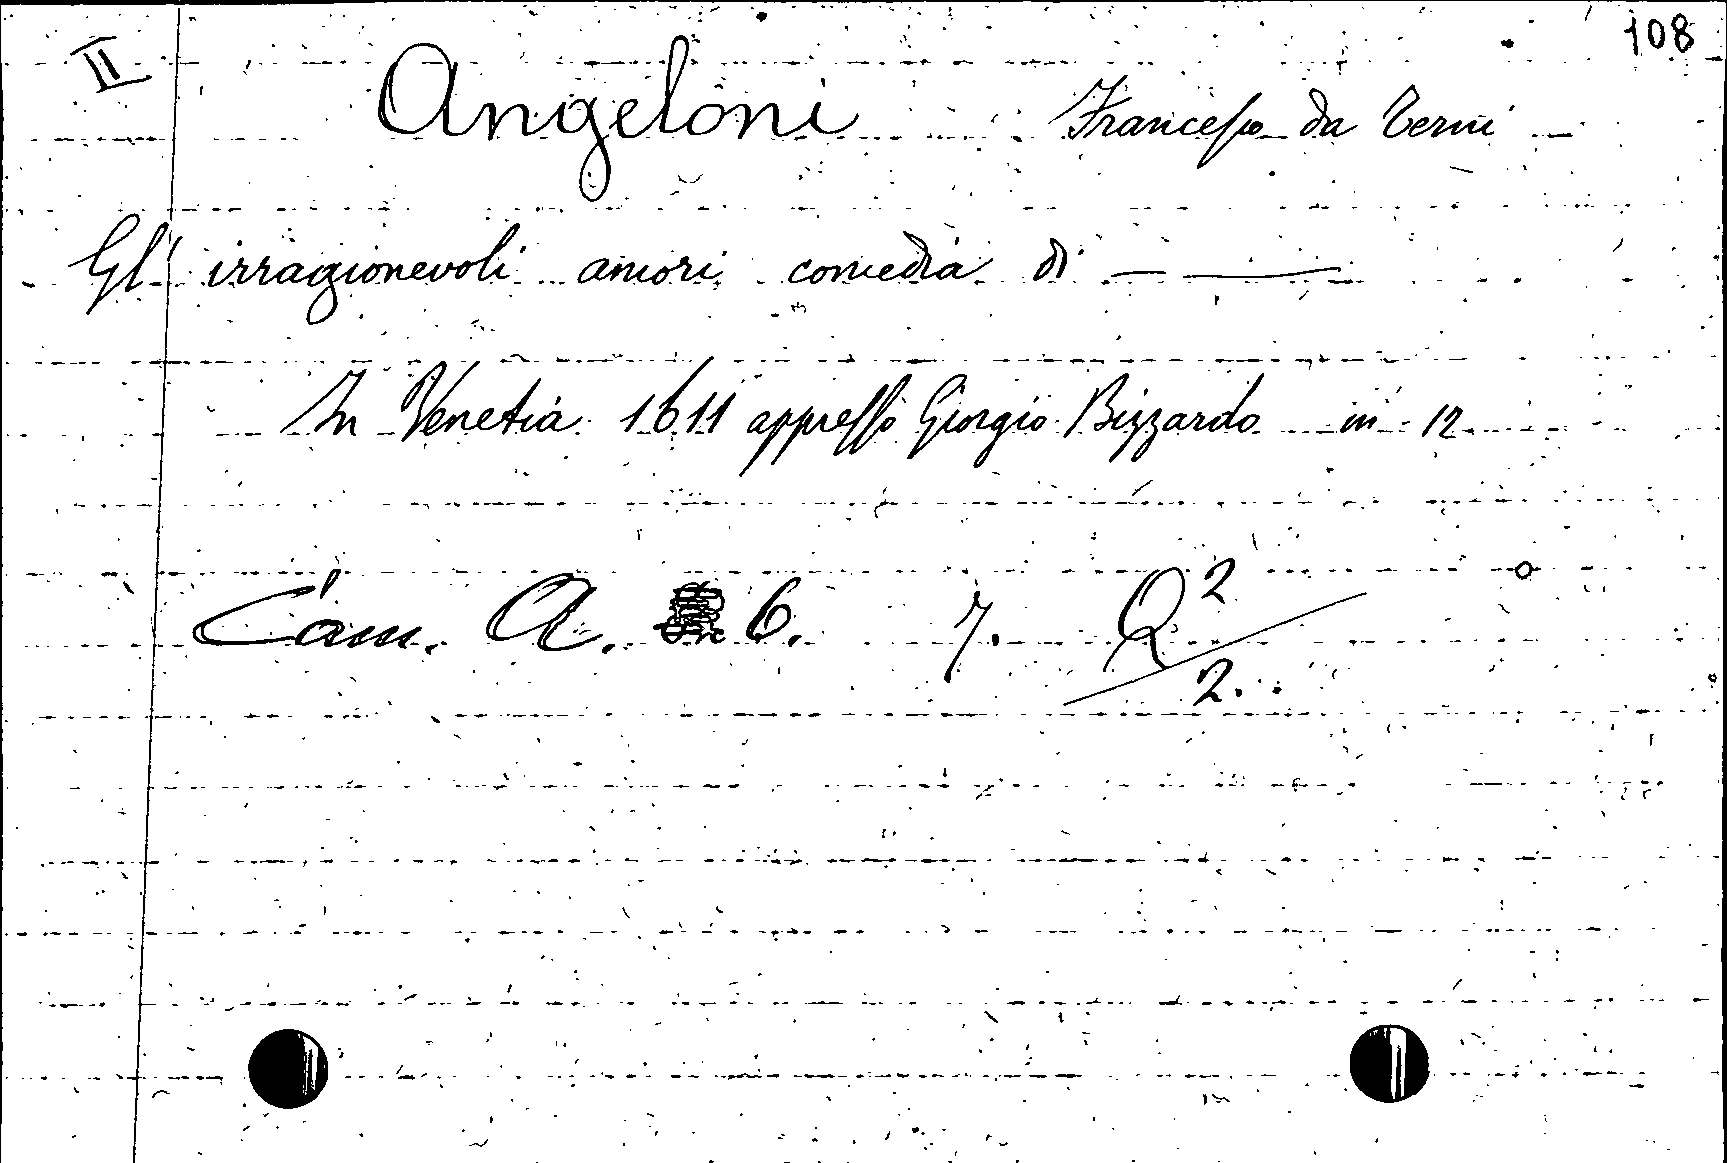 II 108
Angeloni Francesco da Terni —
Gl' irragionevoli amori comedia di — —
In Venetia 1611 appresso Giorgio Bizzardo in 12
Cam. A. 6. 7. Q 2/2.